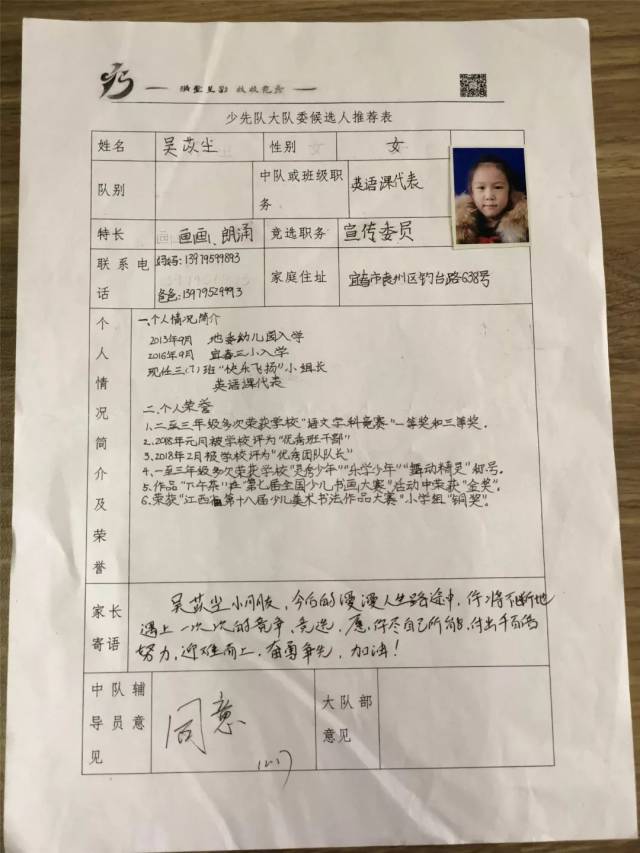 少先队大队委候选人推荐表
姓名 吴苡尘 性别 女
队别 中队或班级职务 英语课代表
特长 画画、朗诵 竞选职务 宣传委员
联系电话 妈妈:13979599893 家庭住址 宜春市袁州区钓台路638号
爸爸:13979529993
个人情况简介及荣誉
一、个人情况简介
2013年9月 地委幼儿园入学
2016年9月 宜春三小入学
现任三(7)班“快乐飞扬”小组长
英语课代表
二、个人荣誉
1、二至三年级多次荣获学校“语文学科竞赛”一等奖和三等奖.
2、2018年元月被学校评为“优秀班干部”
3、2018年2月被学校评为“优秀团队队长”
4、一至三年级多次荣获学校“灵秀少年”“乐学少年”“舞动精灵”称号.
5、作品“下午茶”在“第七届全国少儿书画大赛”活动中荣获“金奖”.
6、荣获“江西省第十八届少儿美术书法作品大赛”小学组“铜奖”.
家长寄语 吴苡尘小朋友,今后的漫漫人生路途中,你将不断地
遇上一次次的竞争、竞选,愿你尽自己所能,付出千百倍
努力,迎难而上,奋勇争先,加油!
中队辅导员意见 同意 大队部意见